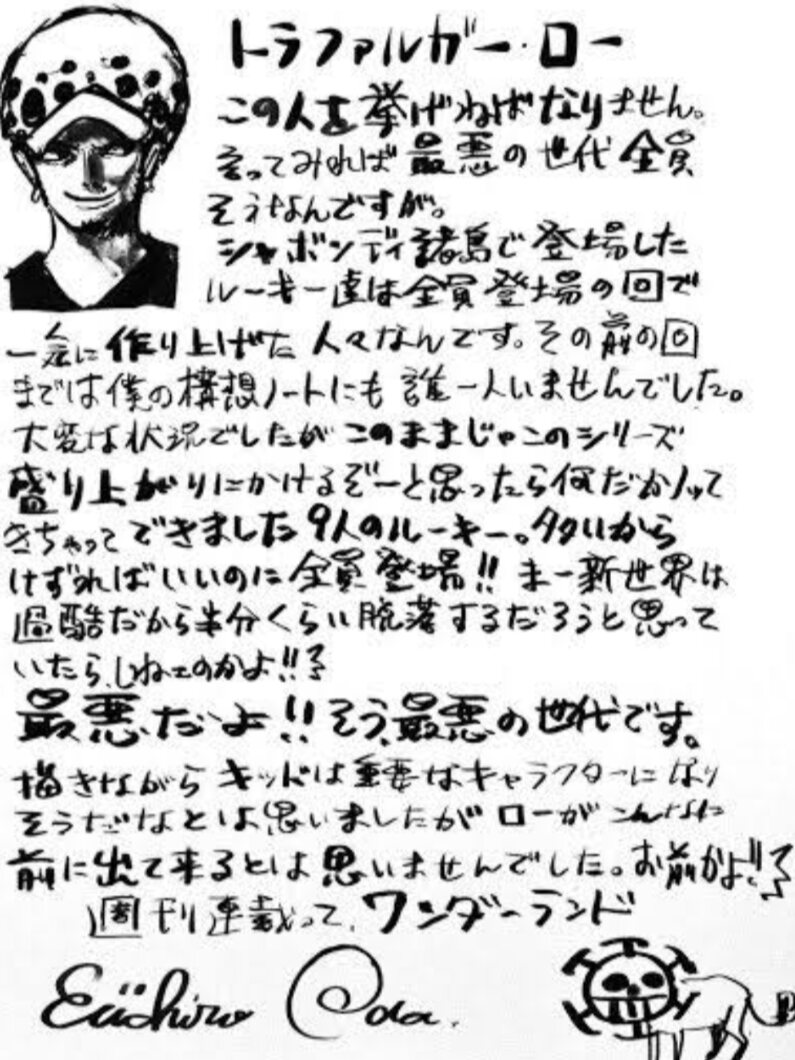 トラファルガー・ロー
この人を挙げねばなりません。
言ってみれば最悪の世代全員
そうなんですが。
シャボンディ諸島で登場した
ルーキー達は全員登場の回で
一気に作り上げた人々なんです。その前の回
までは僕の構想ノートにも誰一人いませんでした。
大変な状況でしたがこのままじゃこのシリーズ
盛り上がりにかけるぞーと思ったら何だか
きちゃってできました9人のルーキー。タタいから
けずればいいのに全員登場!! まー新世界は
過酷だから半分くらい脱落するだろうと思って
いたら、しねェのかよ!!
最悪だよ!! そう、最悪の世代です。
描きながらキッドは重要なキャラクターになり
そうだなとは思いましたがローがこんなに
前に出て来るとは思いませんでした。お前かよ!!
週刊連載って、ワンダーランド
Eiichiro Oda.